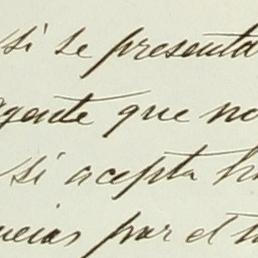 si se presenta
agente que no
si acepta
por el